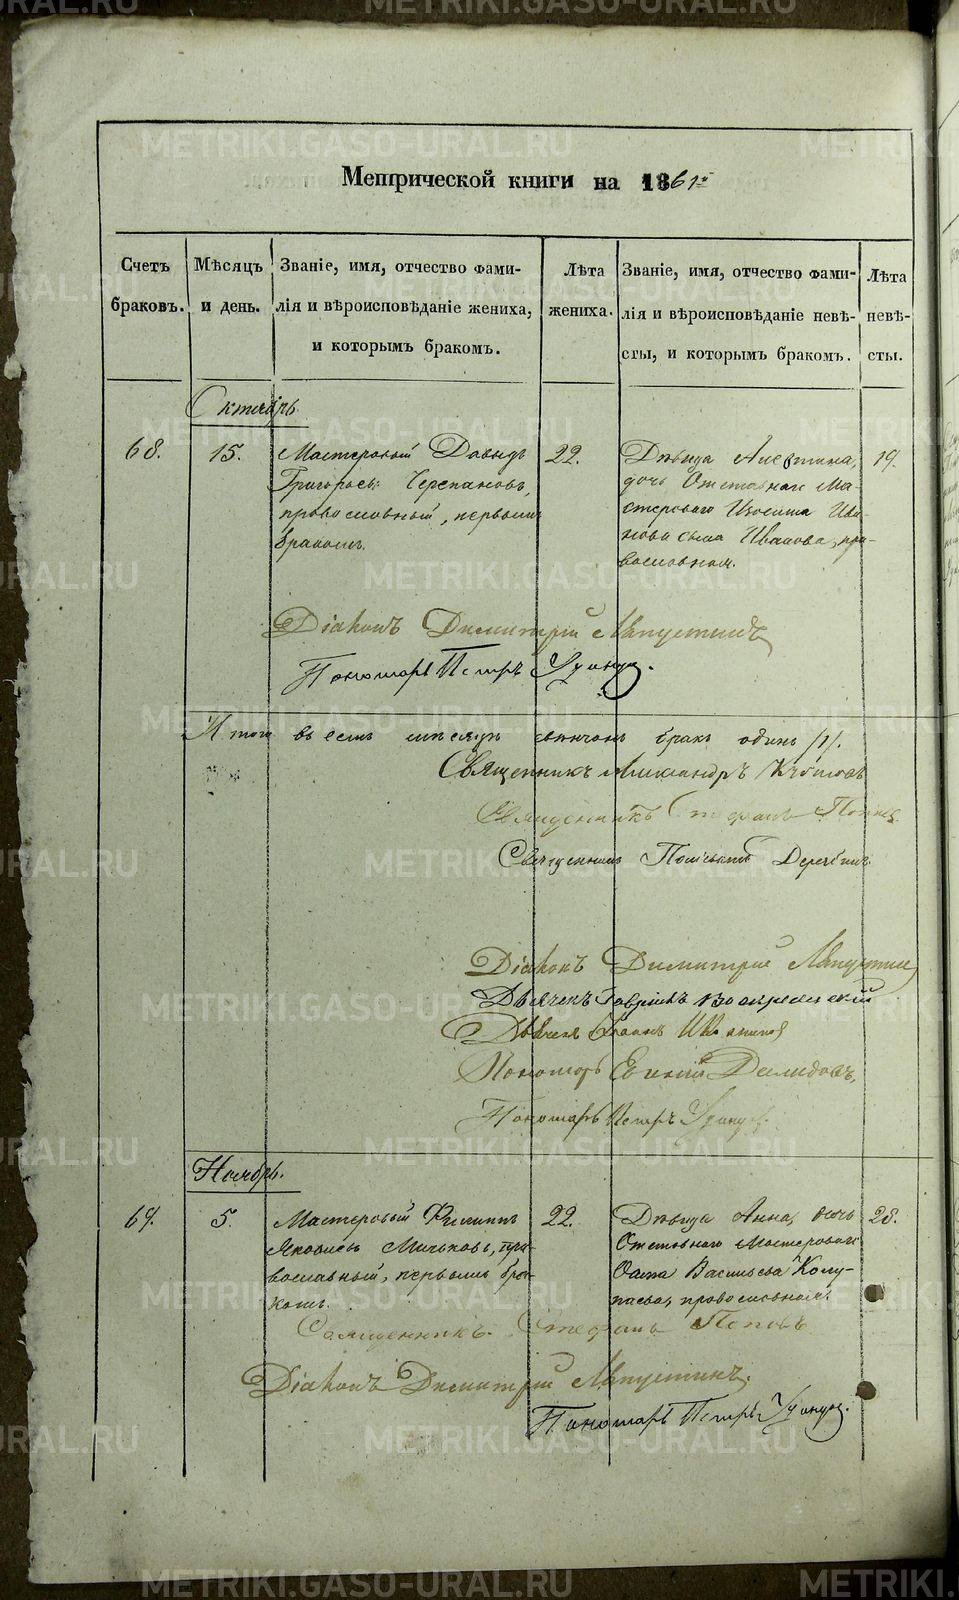 METRIKI.GASO-URAL.RU
Метрической книги на 1861
Счетъ браковъ.
Мѣсяцъ и день.
Званіе, имя, отчество фами-
лія и вѣроисповѣданіе жениха,
и которымъ бракомъ.
Лѣта жениха.
Званіе, имя, отчество фами-
лія и вѣроисповѣданіе невѣ-
сты, и которымъ бракомъ.
Лѣта невѣ-
сты.
Октябрь.
68.
15.
Мастеровый Давыдъ
Григорьевъ Черепановъ,
православный, первымъ
бракомъ.
22.
Дѣвица Алевтина,
дочь Отставнаго Ма-
стероваго Изосима Ива-
нова сына Иванова, пра-
вославная.
19.
Діаконъ Димитрій Лапустинъ
Пономарь Петръ
Итого въ семъ мѣсяцѣ вѣнчанъ бракъ одинъ /1/.
Священникъ Александръ
Священникъ Стефанъ Поповъ
Священникъ
Діаконъ Димитрій Лапустинъ
Дьячекъ Гавріилъ
Дьячекъ
Пономарь Демидовъ
Пономарь Петръ
Ноябрь.
69.
5.
Мастеровый Филиппъ
Яковлевъ Мичковъ, пра-
вославный, первымъ бра-
комъ.
22.
Дѣвица Анна, дочь
Отставнаго Мастероваго
Осипа Васильева Колу-
паева, православная.
28.
Священникъ Стефанъ Поповъ
Діаконъ Димитрій Лапустинъ.
Пономарь Петръ